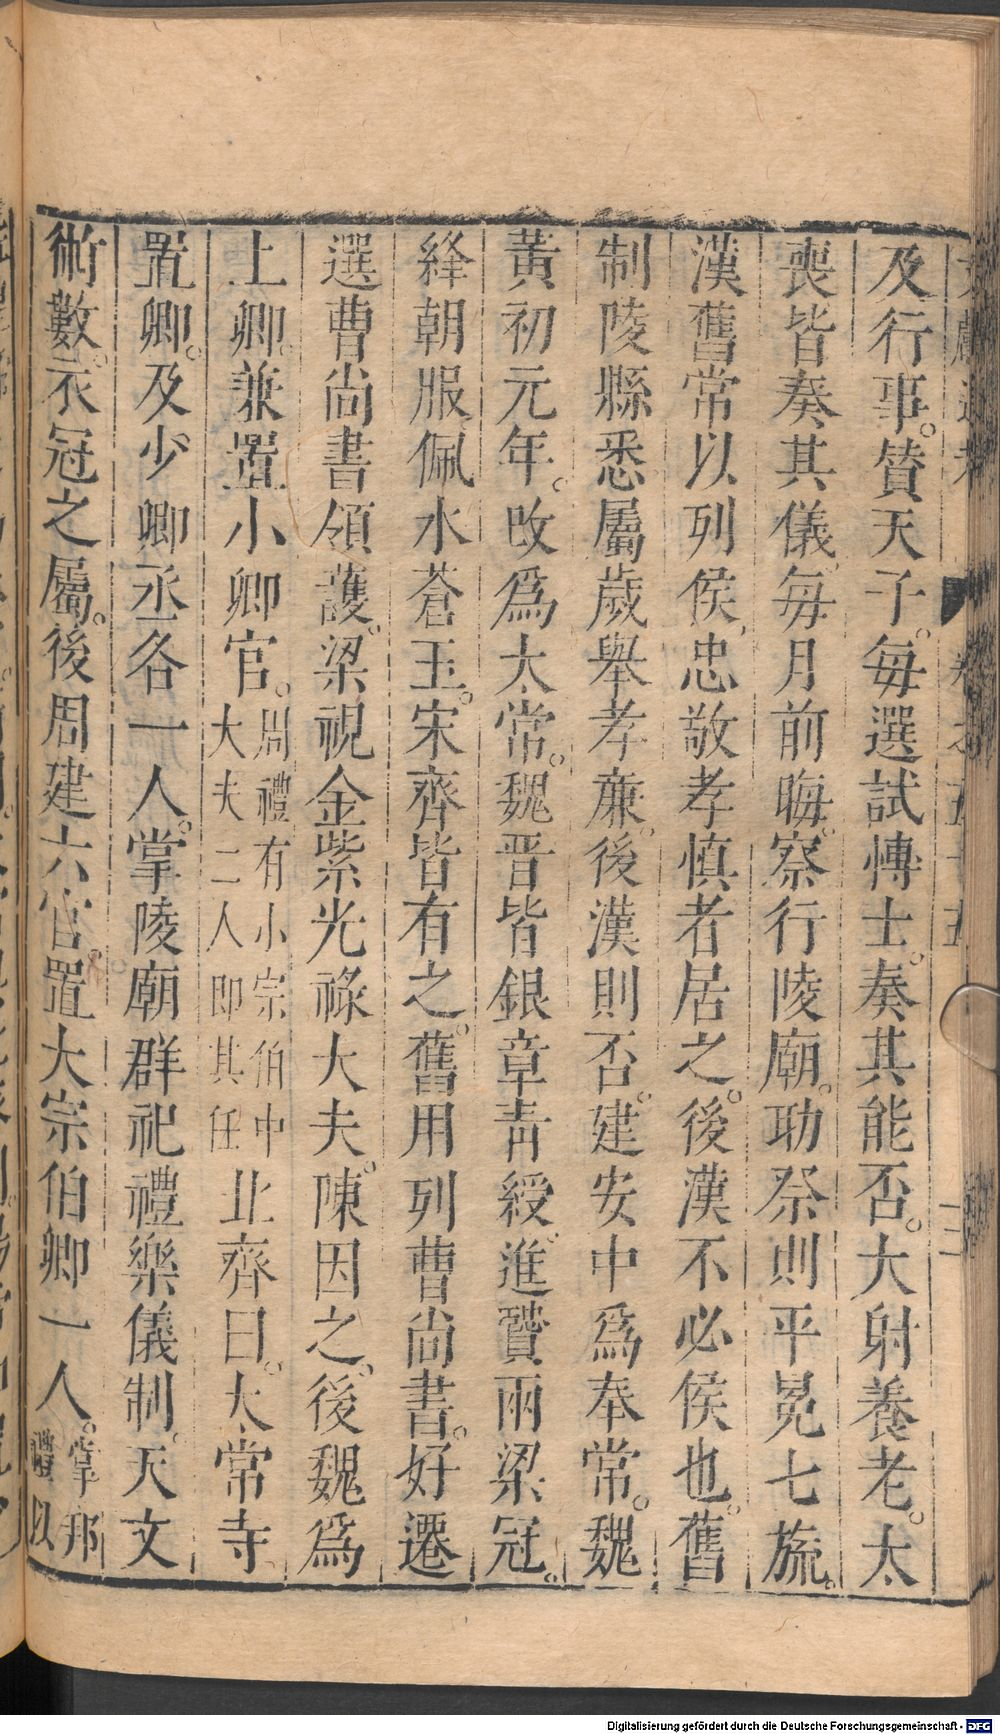 及行事。贊天子。每選試博士。奏其能否。大射養老。大
喪皆奏其儀。每月前晦。察行陵廟。助祭則平冕七旒。
漢舊常以列侯忠敬孝慎者居之。後漢不必侯也。舊
制陵縣悉屬歲舉孝廉。後漢則否。建安中爲奉常。魏
黃初元年。改爲太常。魏晉皆銀章青綬。進賢兩梁冠。
絳朝服佩水蒼玉。宋齊皆有之。舊用列曹尚書。好遷
選曹尚書領護。梁視金紫光祿大夫。陳因之。後魏爲
上卿。兼置小卿官。周禮有小宗伯中大夫二人即其任北齊曰。太常寺
置卿。及少卿丞各一人。掌陵廟群祀禮樂儀制。天文
術數。衣冠之屬。後周建六官。置大宗伯卿一人。掌邦禮以
Digitalisierung gefördert durch die Deutsche Forschungsgemeinschaft - DFG